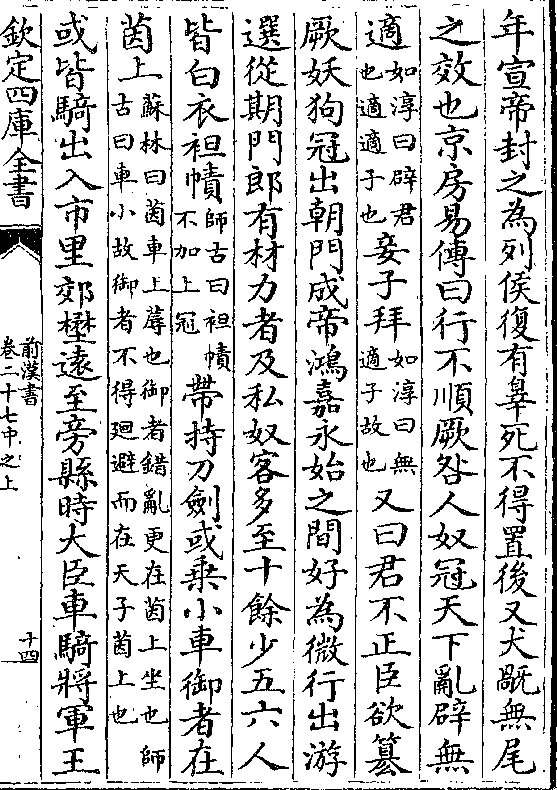 年宣帝封之為列侯復有辠死不得置後又犬䙡無尾
之效也京房易傳曰行不順厥咎人奴冠天下亂辟無
適如淳曰辟君也適適子也妾子拜如淳曰無適子故也又曰君不正臣欲篡
厥妖狗冠出朝門成帝鴻嘉永始之間好為微行出游
選從期門郎有材力者及私奴客多至十餘少五六人
皆白衣袒幘師古曰袒幘不加上冠帶持刀劍或乗小車御者在
茵上蘇林曰茵車上蓐也御者錯亂更在茵上坐也師古曰車小故御者不得廻避而在天子茵上也
或皆騎出入市里郊壄遠至旁縣時大臣車騎將軍王
欽定四庫全書
前漢書
卷二十七中之上
十四